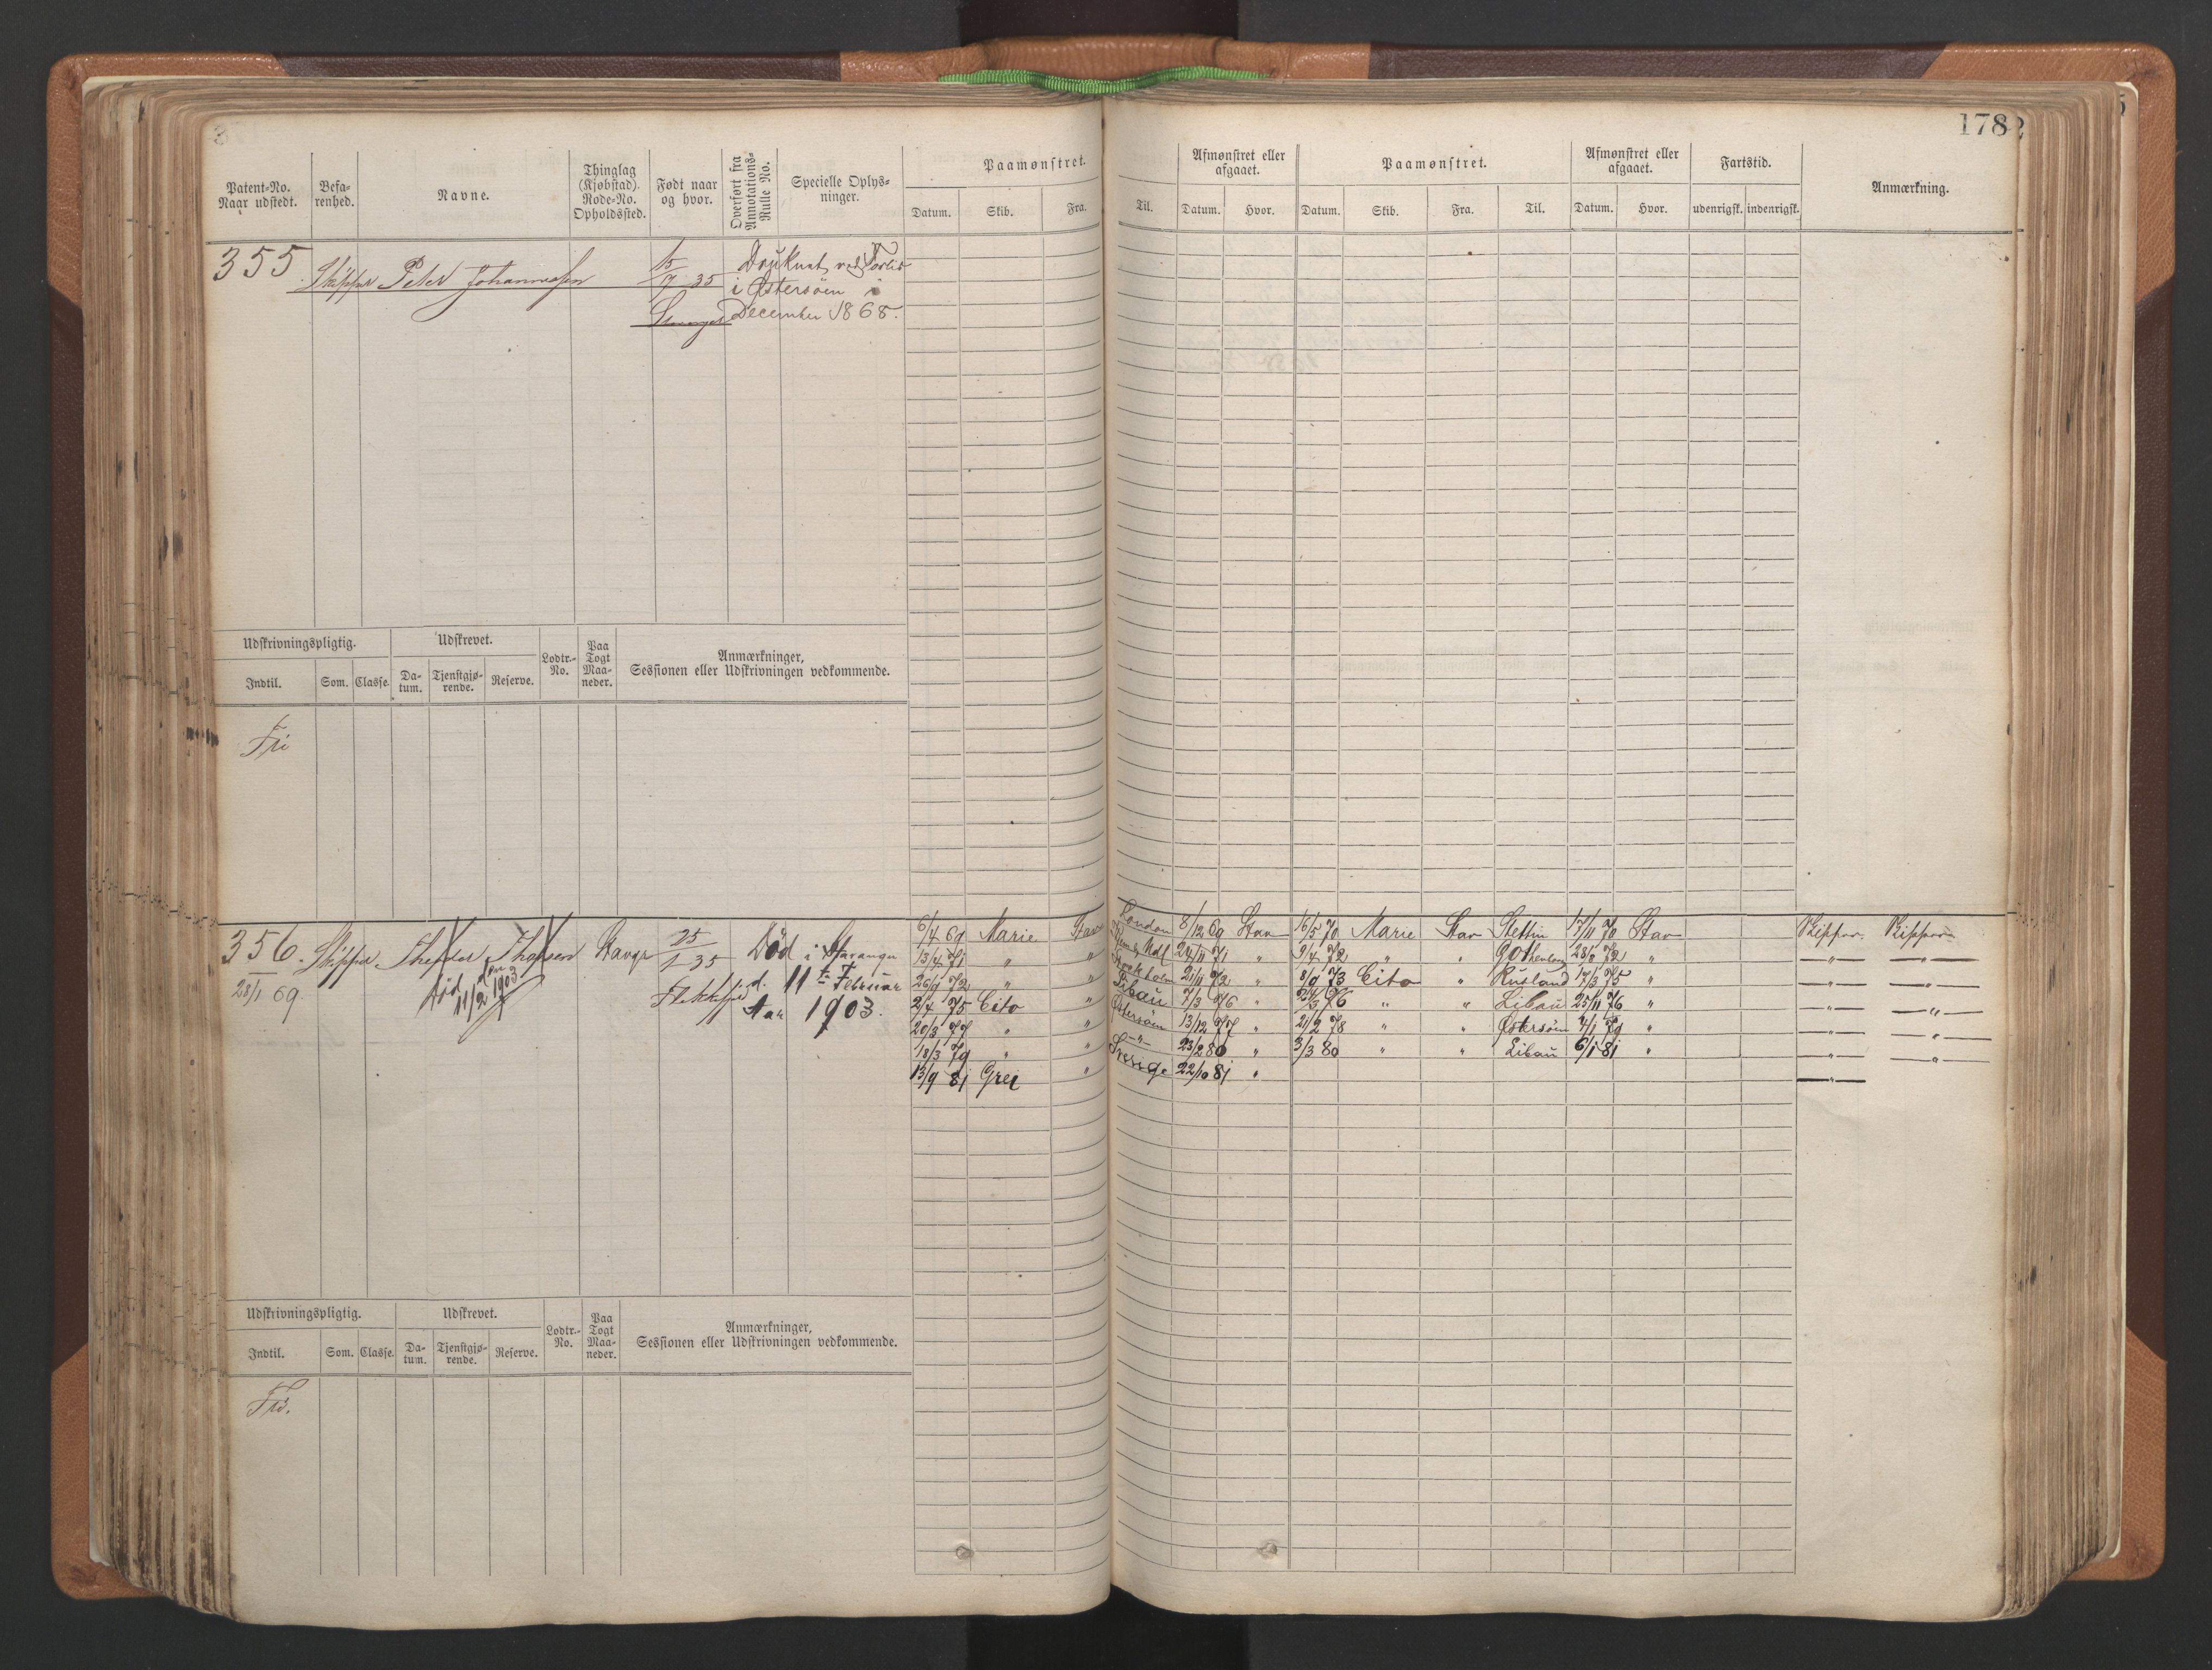 178
Patent-No.
Naar udstedt.
Befa-
renhed.
Navne.
Thinglag
(Kjøbstad).
Rode-No.
Opholdssted.
Født naar
og hvor.
Overført fra
Annotations-
Rulle No.
Specielle Oplys-
ninger.
Paamønstret.
Datum.
Skib.
Fra.
Til.
Afmønstret eller
afgaaet.
Datum.
Hvor.
Paamønstret.
Datum.
Skib.
Fra.
Til.
Afmønstret eller
afgaaet.
Datum.
Hvor.
Fartstid.
udenrigsk.
indenrigsk.
Anmærkning.
355 Skipper Peter Johannessen 15/7 35 Druknet ved Forlis
i Østersøen i
December 1868.
Udskrivningspligtig.
Indtil.
Som.
Classe.
Udskrevet.
Da-
tum.
Tjenstgjø-
rende.
Reserve.
Lodtr.-
No.
Paa
Togt
Maa-
neder.
Anmærkninger,
Sessionen eller Udskrivningen vedkommende.
Fri
356. Skipper 25/1 35 Død i Stavanger
28/1 69. død 11/2 1903 Flekkefjord d. 11te Februar
Aar 1903.
6/4 69 Marie Stav London 8/12 69 Stav 16/5 70 Marie Stav Stettin 17/11 70 Stav Skipper Skipper
13/4 71 " " 24/11 71 " 9/4 72 " " Gothenborg 28/8 72 " " "
26/9 72 " " Stockholm 21/11 72 " 8/9 73 Cito " Rusland 17/3 75 " " "
2/4 75 Cito " Libau 7/3 76 " 24/3 76 " " Libau 25/11 76 " " "
20/3 77 " " Østersøen 13/12 77 " 21/2 78 " " Østersøen 4/1 79 " " "
18/3 79 " " " 23/2 80 " 3/3 80 " " Libau 6/1 81 " " "
13/9 81 Grei " Sverige 22/10 81 " "
Udskrivningspligtig.
Indtil.
Som.
Classe.
Udskrevet.
Da-
tum.
Tjenstgjø-
rende.
Reserve.
Lodtr.-
No.
Paa
Togt
Maa-
neder.
Anmærkninger,
Sessionen eller Udskrivningen vedkommende.
Fri.